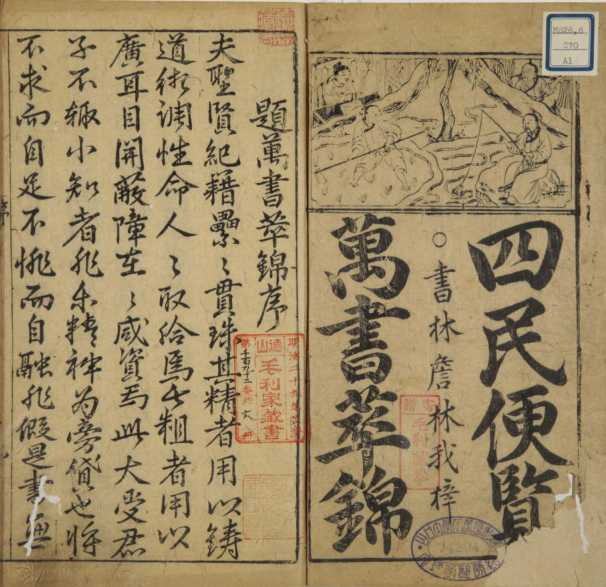 四民便覽
○書林詹林我梓
萬書萃錦
M096,6
270
A1
題萬書萃錦序
夫聖賢紀籍纍〻貫珠其精者用以鑄
道術調性命人〻取給焉其粗者用以
廣耳目開蔽障在〻咸資焉此大受君
子不輙小知者非乐精神为旁貸也將
不求而自足不恍而自融非假是書無
毛利家藏書